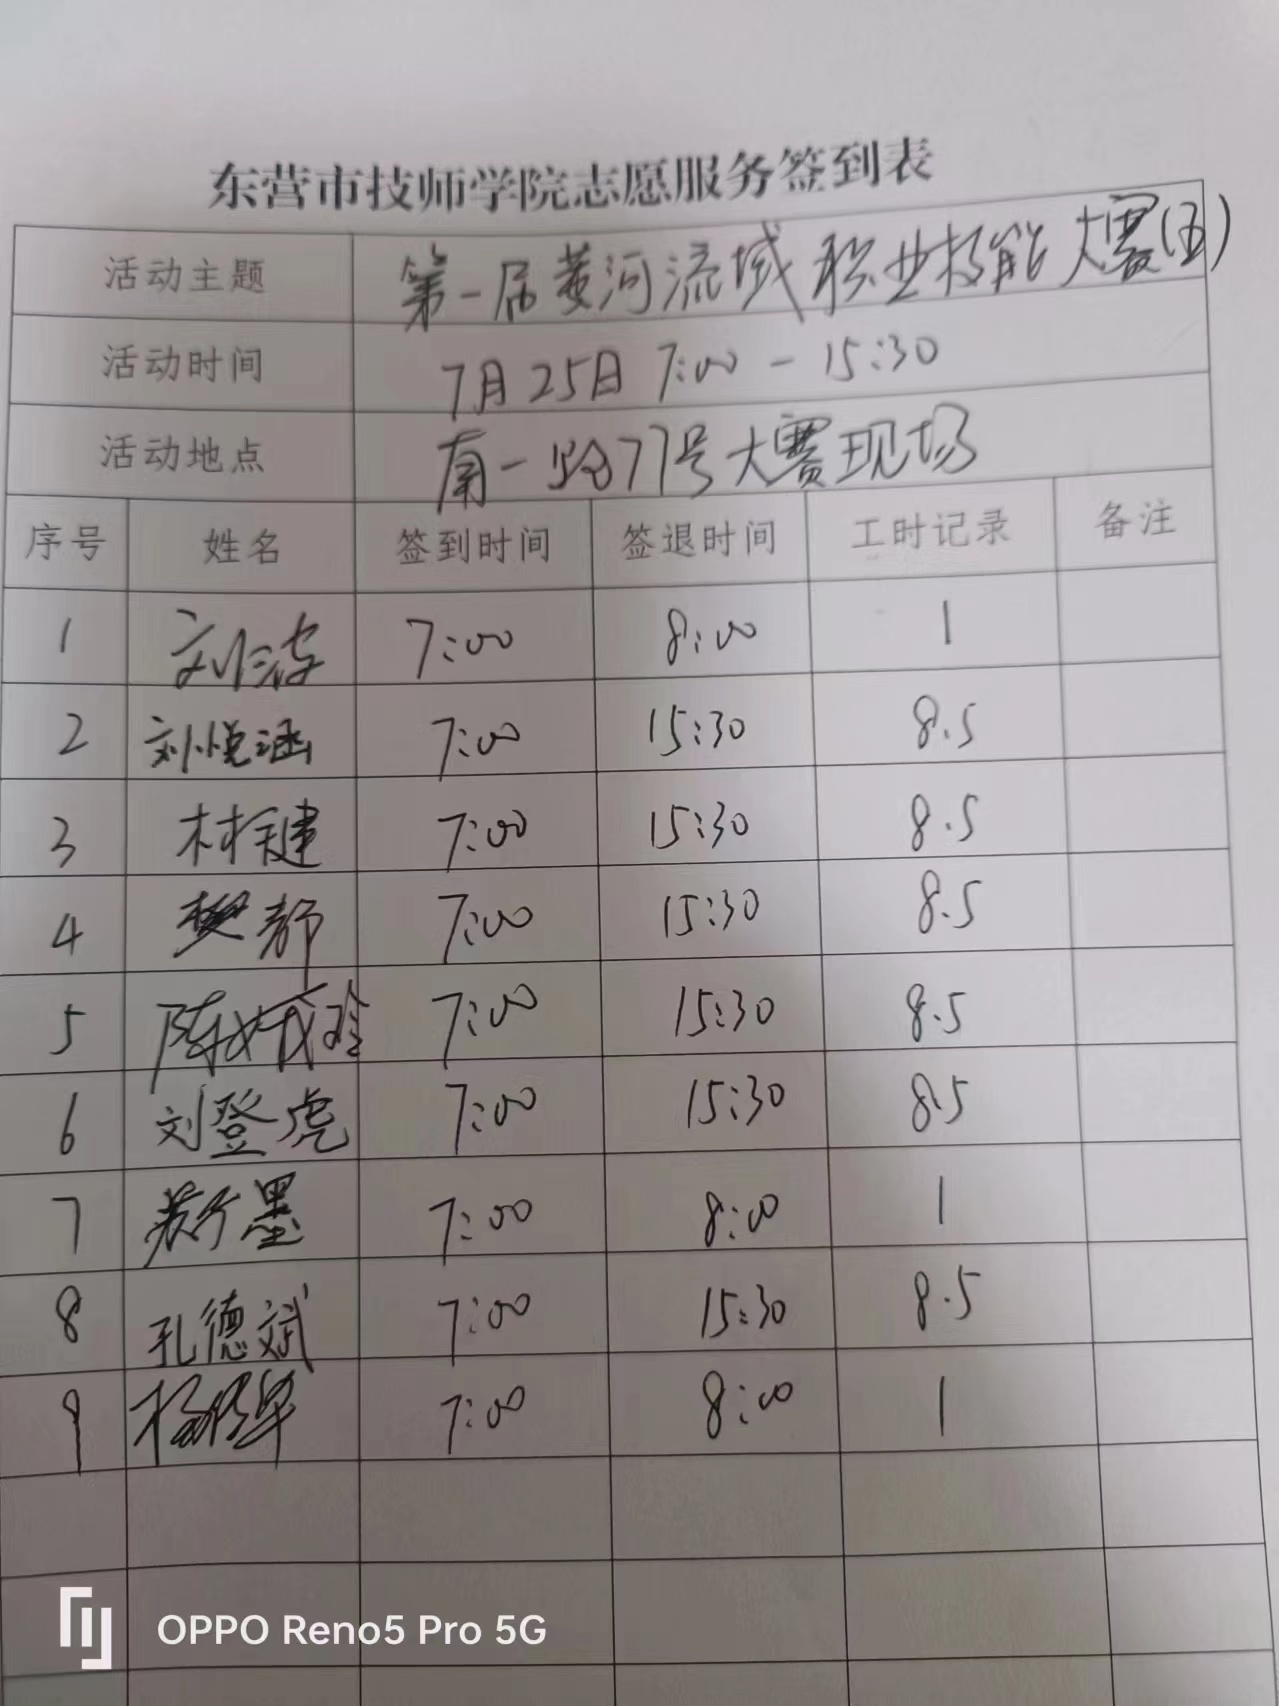 东营市技师学院志愿服务签到表
活动主题 第一届黄河流域职业技能大赛(五)
活动时间 7月25日 7:00-15:30
活动地点 南一路77号大赛现场
序号 姓名 签到时间 签退时间 工时记录 备注
1 刘波 7:00 8:00 1
2 刘悦涵 7:00 15:30 8.5
3 林健 7:00 15:30 8.5
4 樊静 7:00 15:30 8.5
5 陈 7:00 15:30 8.5
6 刘登虎 7:00 15:30 8.5
7 墨 7:00 8:00 1
8 孔德斌 7:00 15:30 8.5
9 杨 7:00 8:00 1
OPPO Reno5 Pro 5G